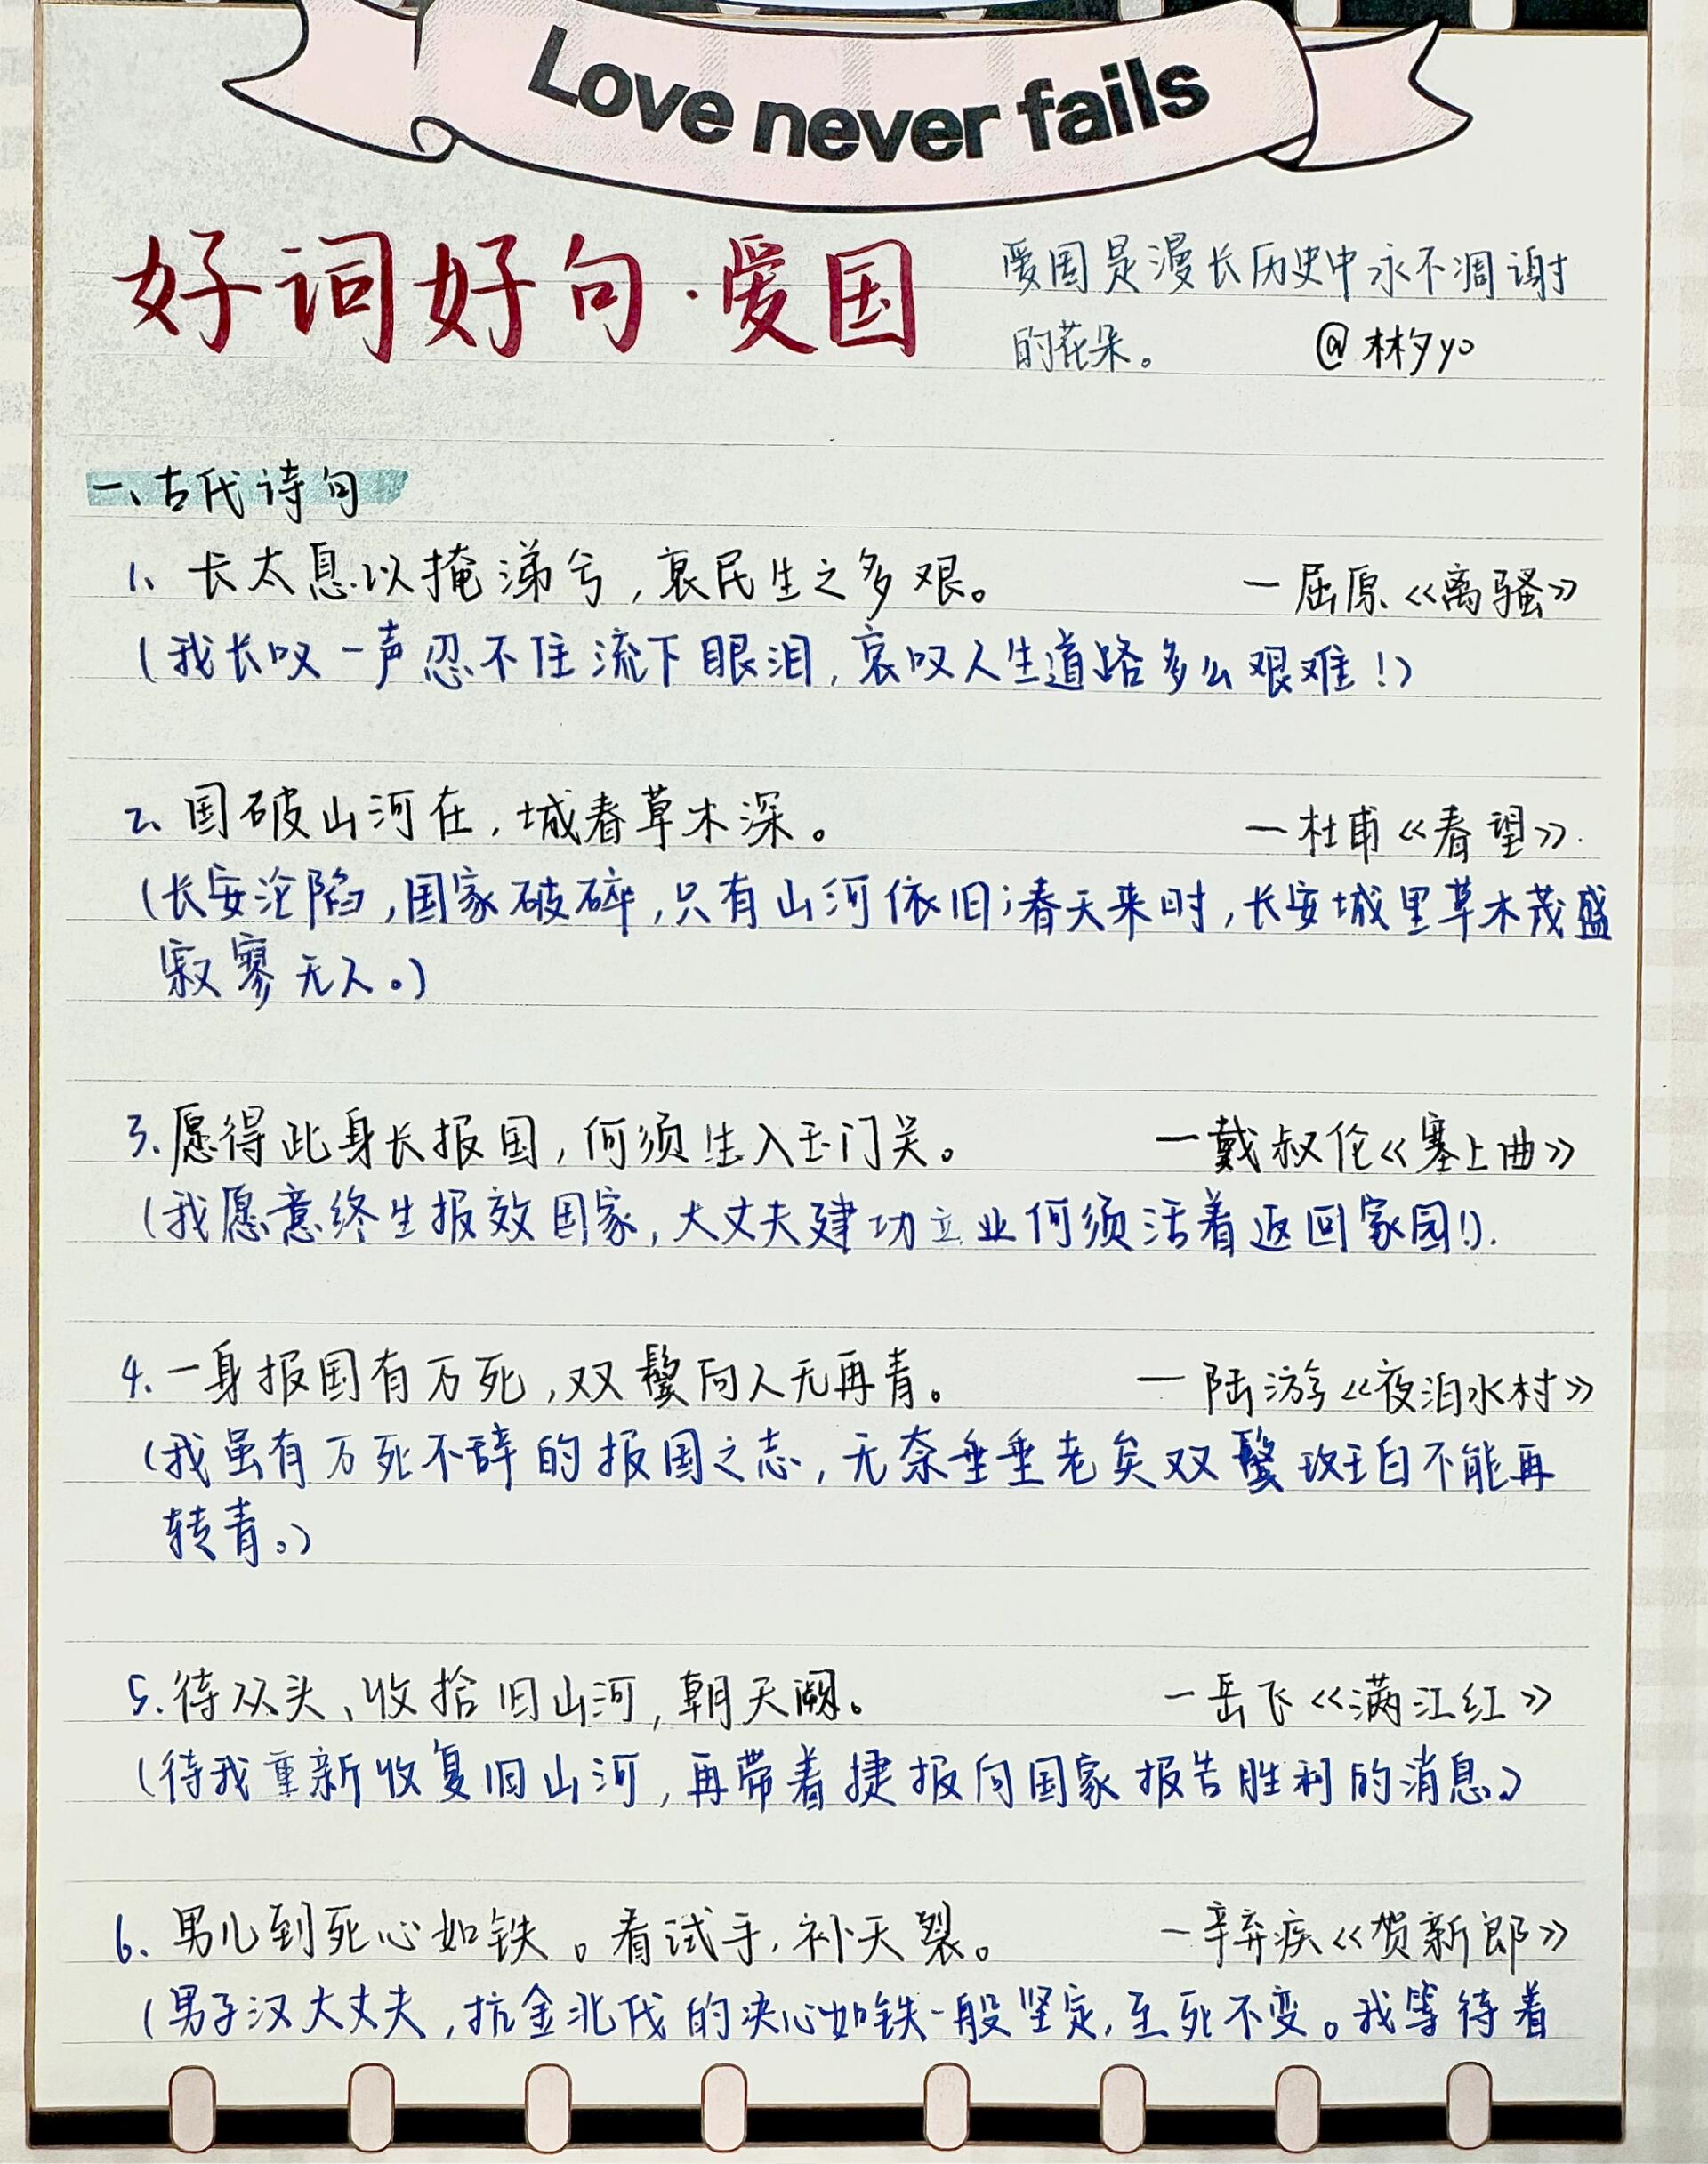 Love never fails
好词好句·爱国
爱国是漫长历史中永不凋谢
的花朵。 @林夕yo
一、古代诗句
1、长太息以掩涕兮,哀民生之多艰。 一屈原《离骚》
(我长叹一声忍不住流下眼泪,哀叹人生道路多么艰难!)
2、国破山河在,城春草木深。 一杜甫《春望》.
(长安沦陷,国家破碎,只有山河依旧;春天来时,长安城里草木茂盛
寂寥无人。)
3.愿得此身长报国,何须生入玉门关。 一戴叔伦《塞上曲》
(我愿意终生报效国家,大丈夫建功立业何须活着返回家园!).
4.一身报国有万死,双鬓向人无再青。 一陆游《夜泊水村》
(我虽有万死不辞的报国之志,无奈垂垂老矣双鬓斑白不能再
转青。)
5.待从头、收拾旧山河,朝天阙。 一岳飞《满江红》
(待我重新收复旧山河,再带着捷报向国家报告胜利的消息。)
6、男儿到死心如铁。看试手,补天裂。 一辛弃疾《贺新郎》
(男子汉大丈夫,抗金北伐的决心如铁一般坚定,至死不变。我等待着